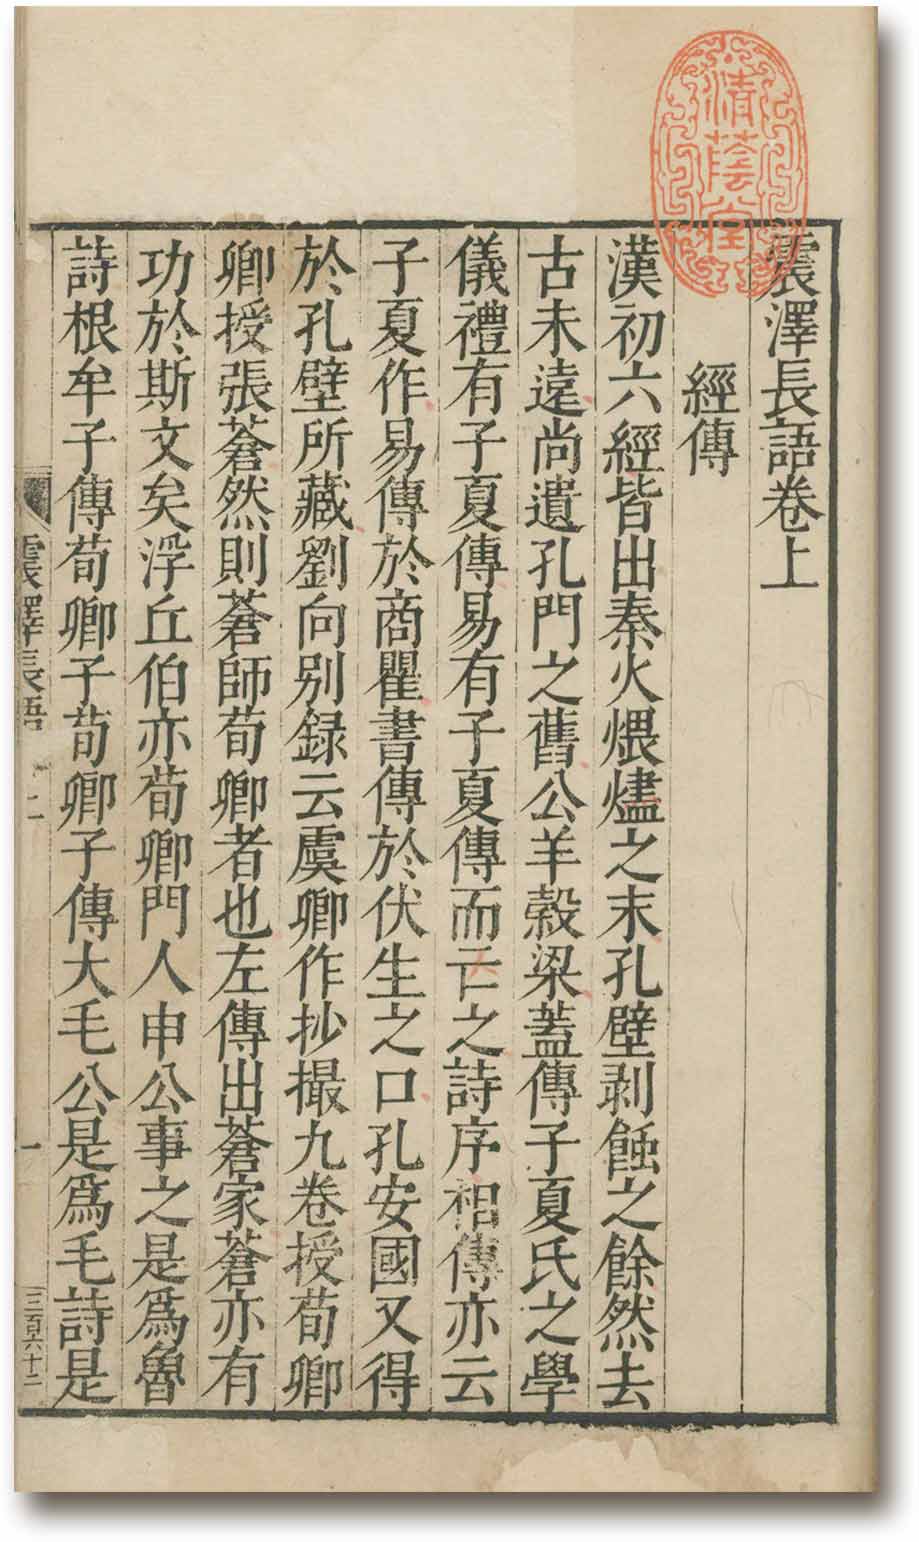 清蔭堂
震澤長語卷上
經傳
漢初六經皆出秦火煨燼之末孔壁剥蝕之餘然去
古未遠尚遺孔門之舊公羊糓梁蓋傳子夏氏之學
儀禮有子夏傳易有子夏傳而亡之詩序相傳亦云
子夏作易傳於商瞿書傳於伏生之口孔安國又得
於孔壁所藏劉向别録云虞卿作抄撮九卷授荀卿
卿授張蒼然則蒼師荀卿者也左傳出蒼家蒼亦有
功於斯文矣浮丘伯亦荀卿門人申公事之是爲魯
詩根牟子傳荀卿子荀卿子傳大毛公是爲毛詩是
震澤長語 上 一 三百六十二